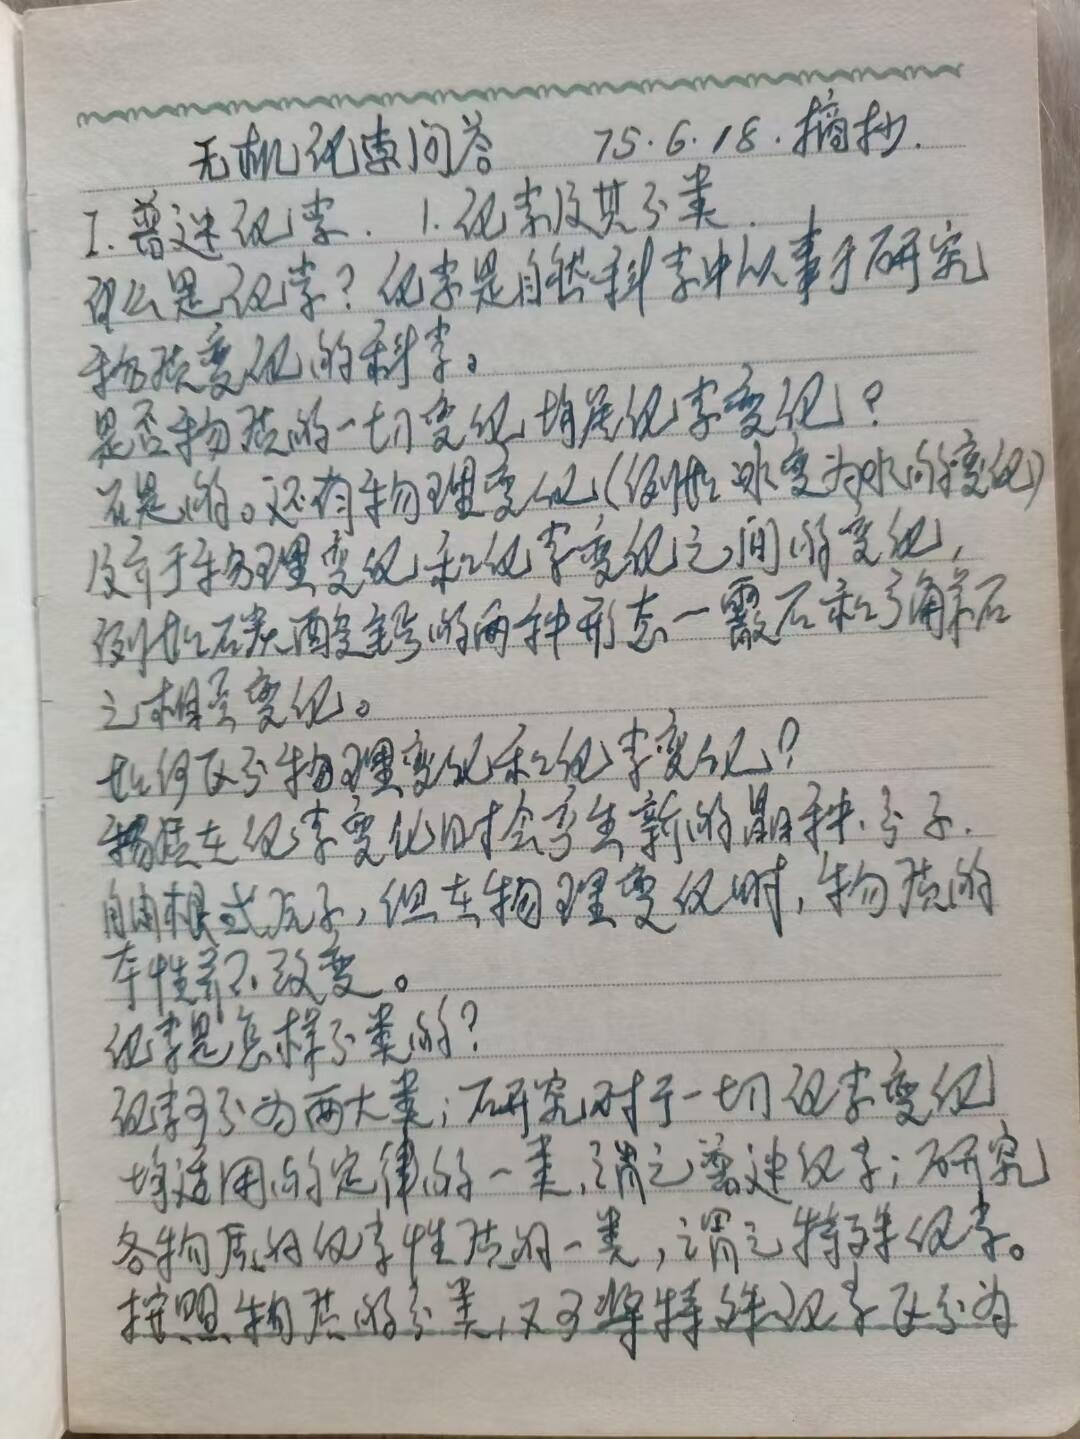 无机化学问答 75.6.18.摘抄.
I.普通化学. 1.化学及其分类.
什么是化学?化学是自然科学中从事于研究
物质变化的科学。
是否物质的一切变化均是化学变化?
不是的。还有物理变化(例如冰变为水的变化)
及介于物理变化和化学变化之间的变化,
例如碳酸钙的两种形态一霰石和方解石
之相互变化。
如何区分物理变化和化学变化?
物质在化学变化时会产生新的晶种.分子.
自由根或原子,但在物理变化时,物质的
本性并不改变。
化学是怎样分类的?
化学可分为两大类;研究对于一切化学变化
均适用的定律的一类,谓之普通化学;研究
各物质的化学性质的一类,谓之特殊化学。
按照物质的分类,又可将特殊化学区分为